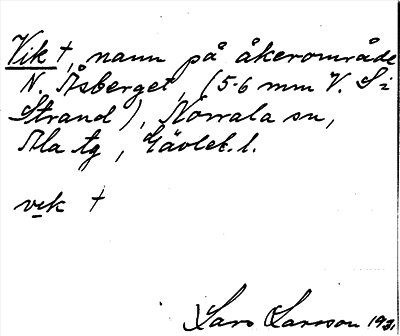 Vik †, namn på åkerområde
N. Åsberget, (5-6 mm V. S:
Strand), Norrala sn,
Ala tg, Gävleb. l.
vɩk †
Lars Larsson 1931